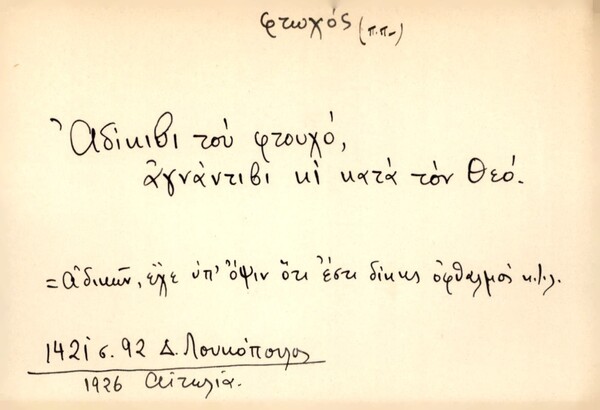 φτωχός (π.π.)
Ἀδίκιβι τοὺ φτουχό,
ἀγνάντιβι κὶ κατὰ τὸν Θεό.
= ἀδικῶν, ἔχε ὑπ' ὄψιν ὅτι ἔστι δίκης ὀφθαλμὸς κ.λ.
1421 σ. 92 Δ. Λουκόπουλος
1926 Αἰτωλία.